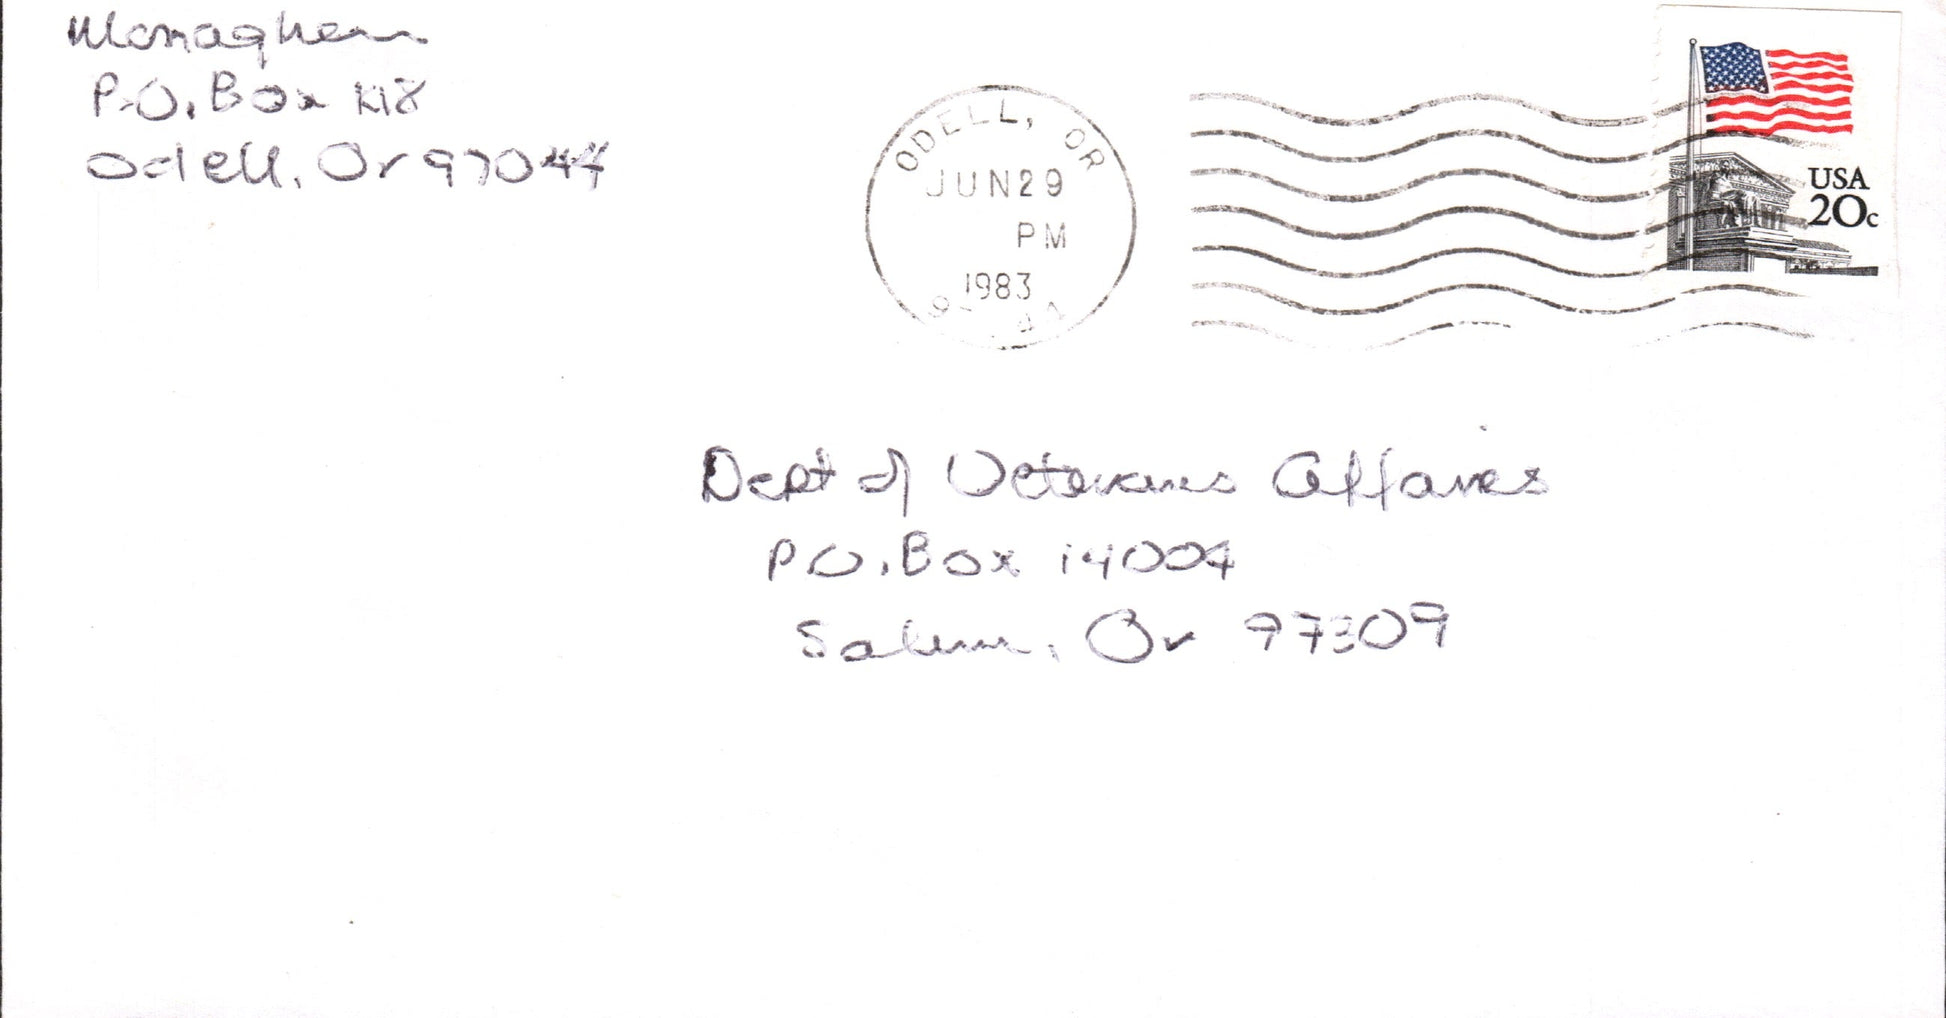 Monaghan
P.O. Box
Odell, Or 97044
ODELL, OR
JUN 29
PM
1983
USA
20c
Dept of Veterans Affaires
P.O. Box 14004
Salem, Or 97309